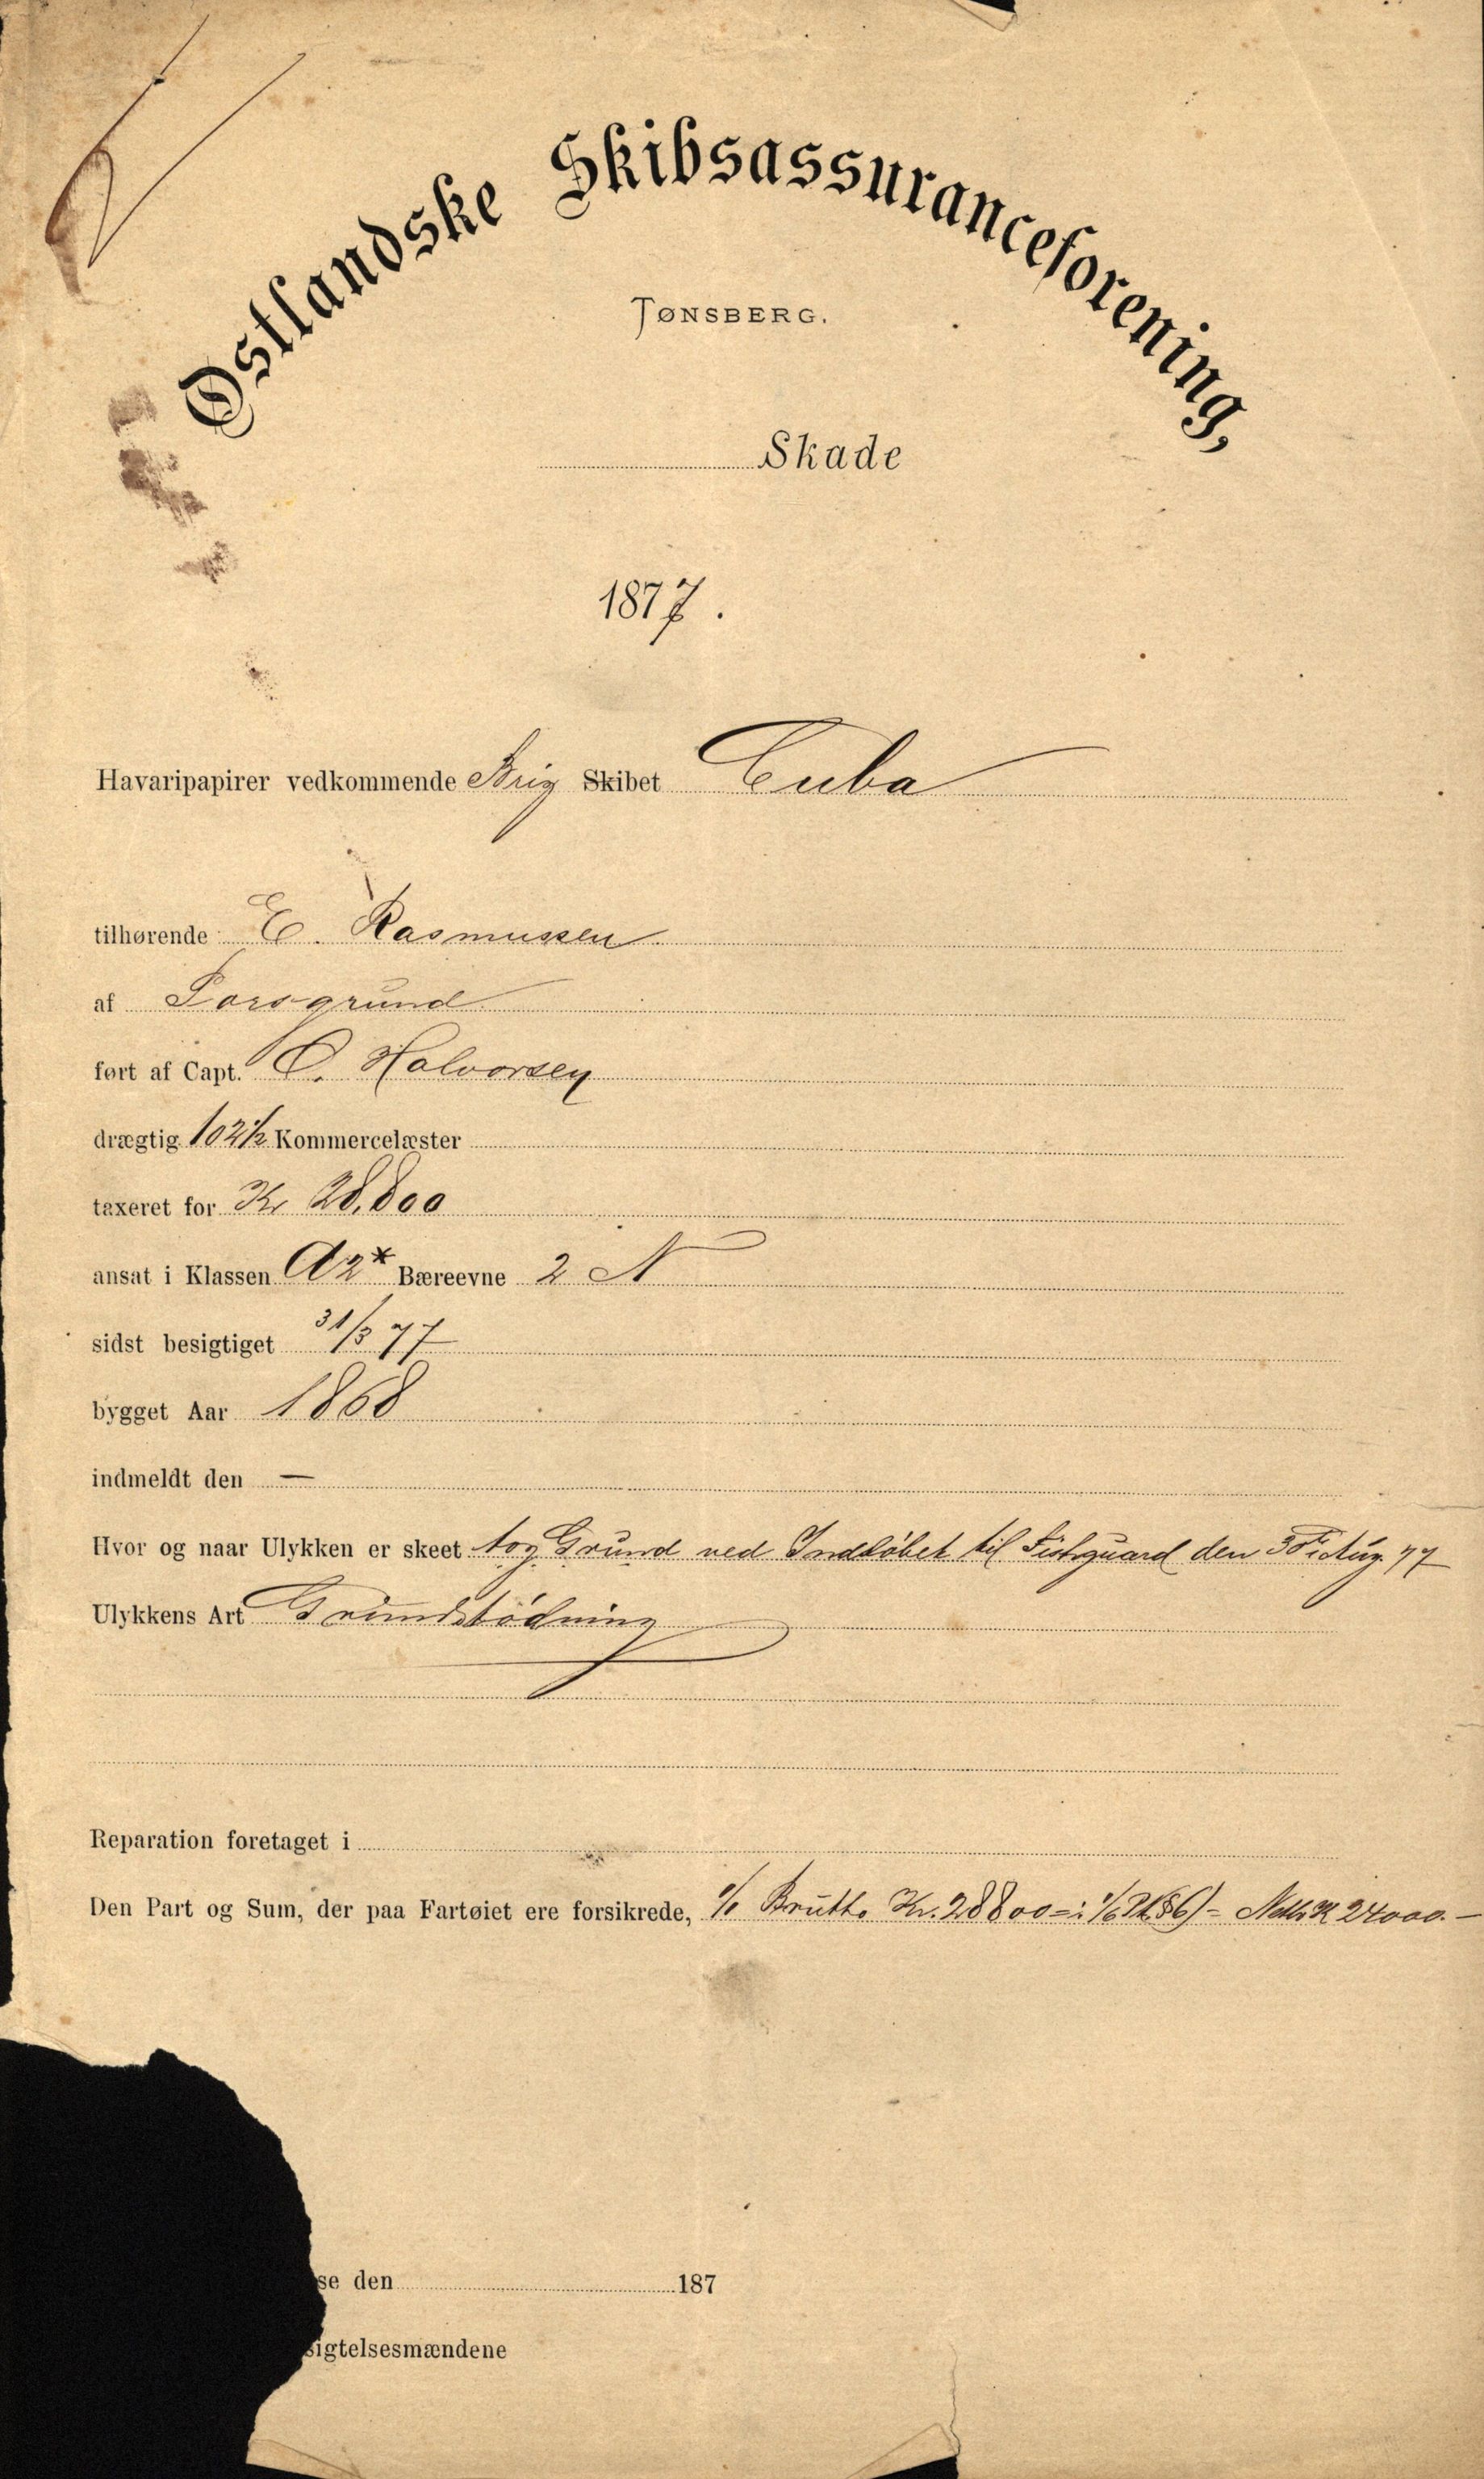 Østlandske Skibsassuranceforening,
TØNSBERG.
Skade
1877.
Havaripapirer vedkommende Brig Skibet Cuba
tilhørende E. Rasmussen
af Porsgrund
ført af Capt. O. Halvorsen
drægtig 102½ Kommercelæster
taxeret for Kr 28,800
ansat i Klassen A2* Bæreevne 2 N
sidst besigtiget 31/3 77
bygget Aar 1868
indmeldt den —
Hvor og naar Ulykken er skeet tog Grund ved Indløbet til Fishguard den Aug. 77
Ulykkens Art Grundstødning
Reparation foretaget i
Den Part og Sum, der paa Fartøiet ere forsikrede, Brutto Kr. 28800 = 1/6 §6) = Netto K 24000.—
se den 187
sigtelsesmændene